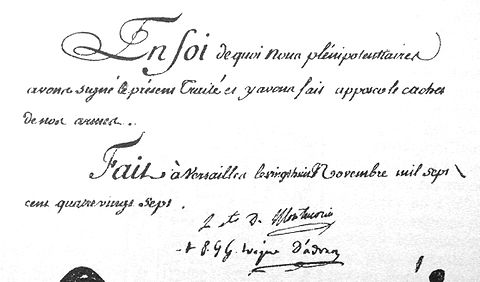 En foi de quoi Nous plénipotentiaires
avons signé le présent Traité et y avons fait apposer le cachet
de nos armes.
Fait à Versailles le vingt huit Novembre mil sept
cent quatrevingt sept.
cte De Montmorin
évêque D'adran